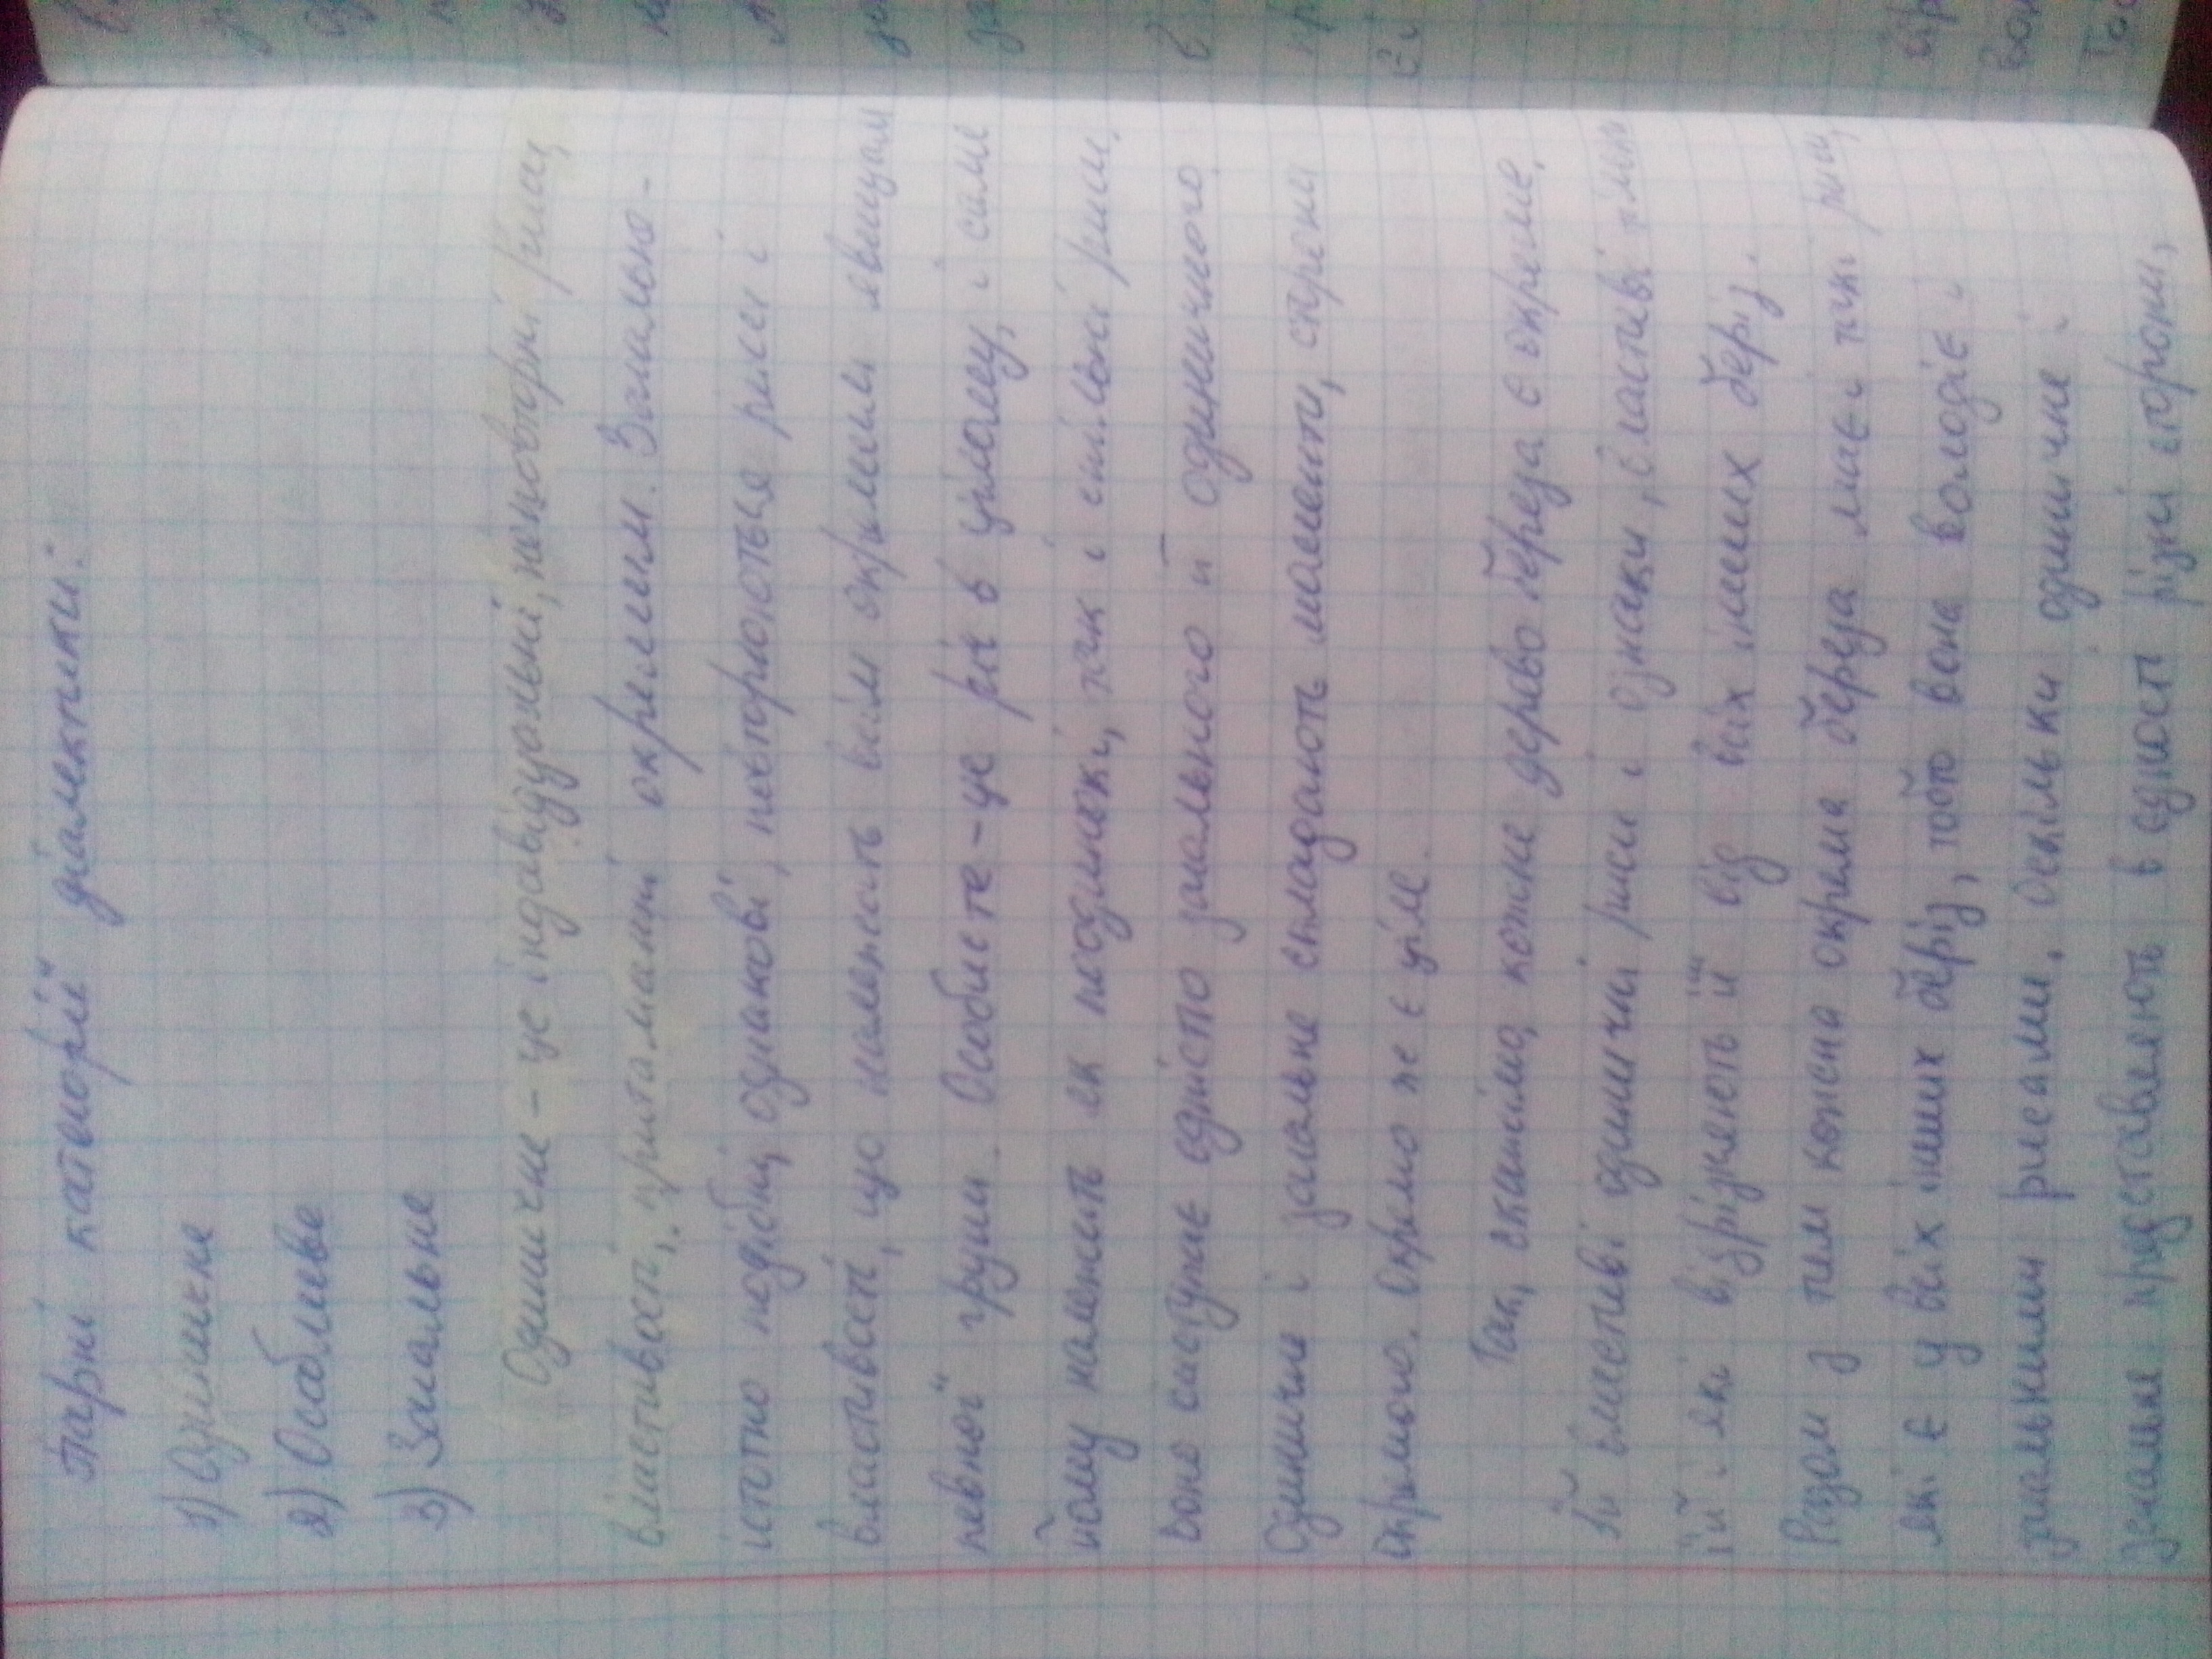 Парні категорії діалектики:
1) Одиничне
2) Особливе
3) Загальне
Одиничне - це індивідуальні, неповторні риси,
властивості, притаманні окремим. Загальне -
істотно подібні, однакові, повторюються риси і
властивості, що належать всім окремим явищам
певної групи. Особисте - це річ в цілому, і саме
йому належать як поодинокі, так і спільні риси.
Воно виступає єдністю загального й одиничного.
Одиничне і загальне складають моменти, сторони
окремого. Окремо же є ціле.
Так, скажімо, кожне дерево береза є окреме.
Їй властиві одиничні риси і ознаки, властиві тільки
їй і які відрізняють її від всіх інших беріз.
Разом з тим кожна окрема береза має і такі риси,
які є у всіх інших беріз, тобто вона володіє і
загальними рисами. Оскільки одиничне і
загальне представляють в єдності різні сторони,